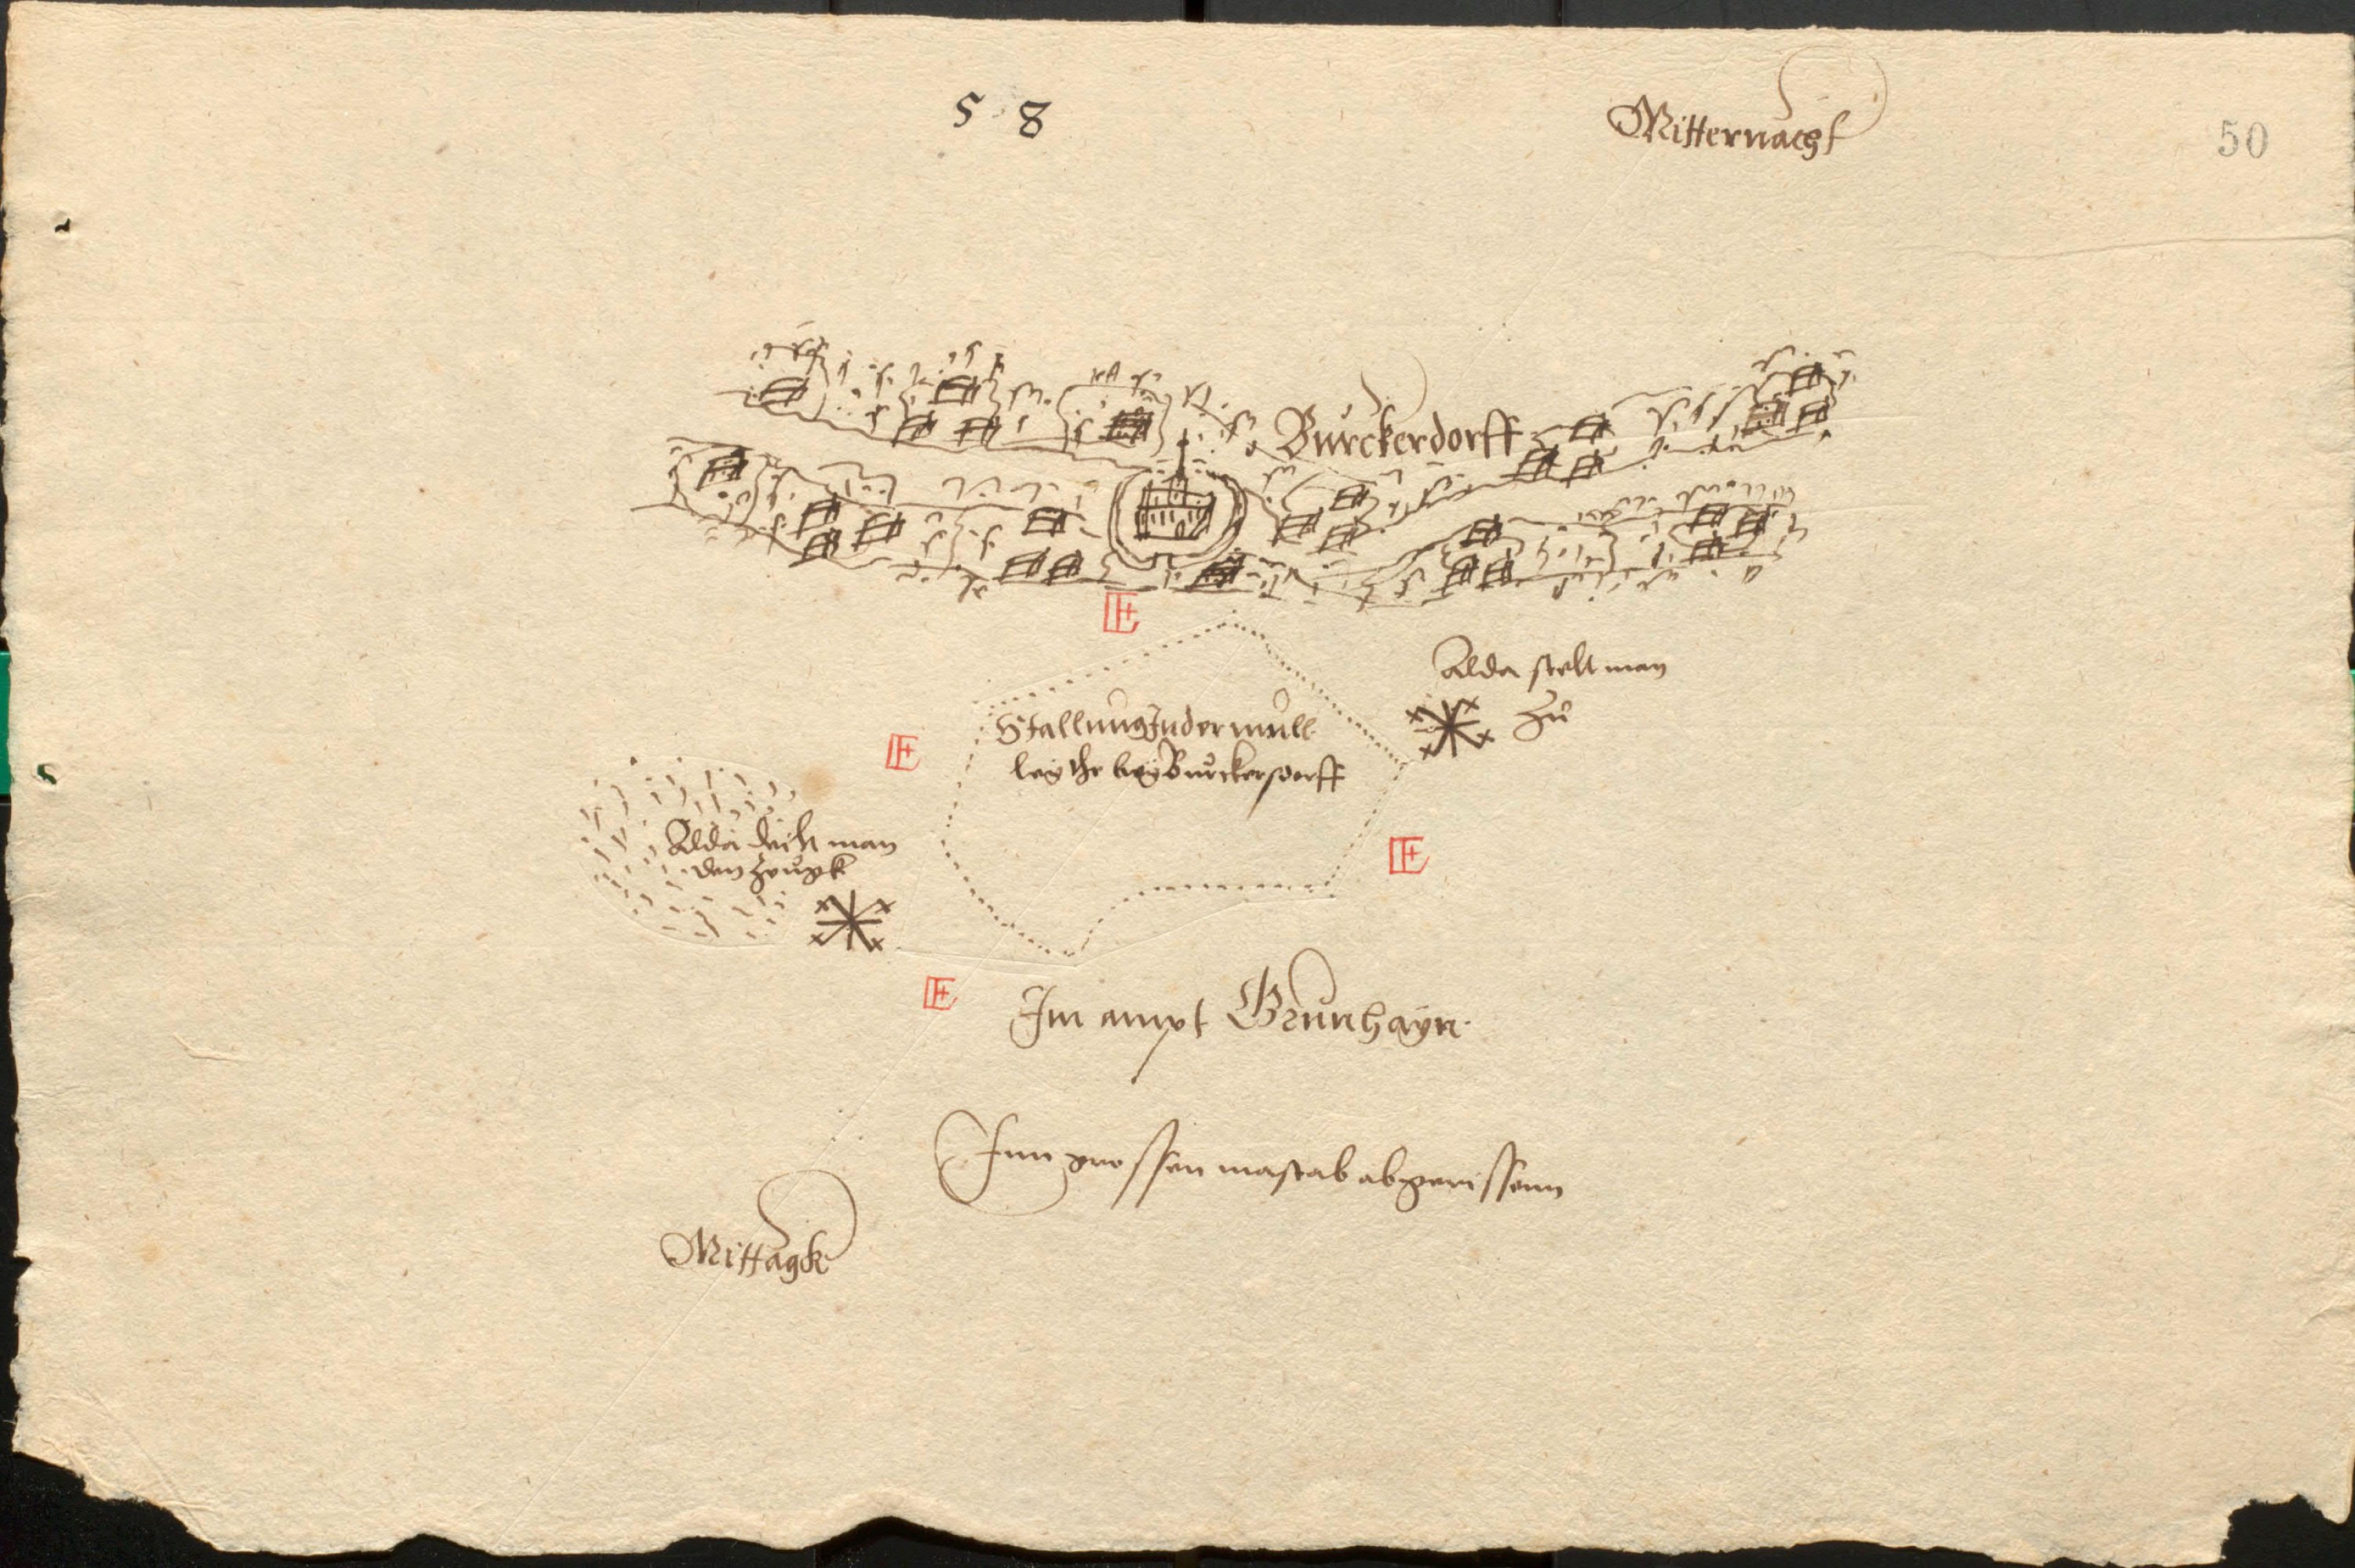 5 8
Mitternacht
50
Burckerdorff
E
Alda stelt man
zu
Stallung In der mull
leythe bey Burckersdorff
E
Alda man
den zeugk
E
E
Im ampt Grunhayn
Inn grossen mastab abgerissenn
Mittagk